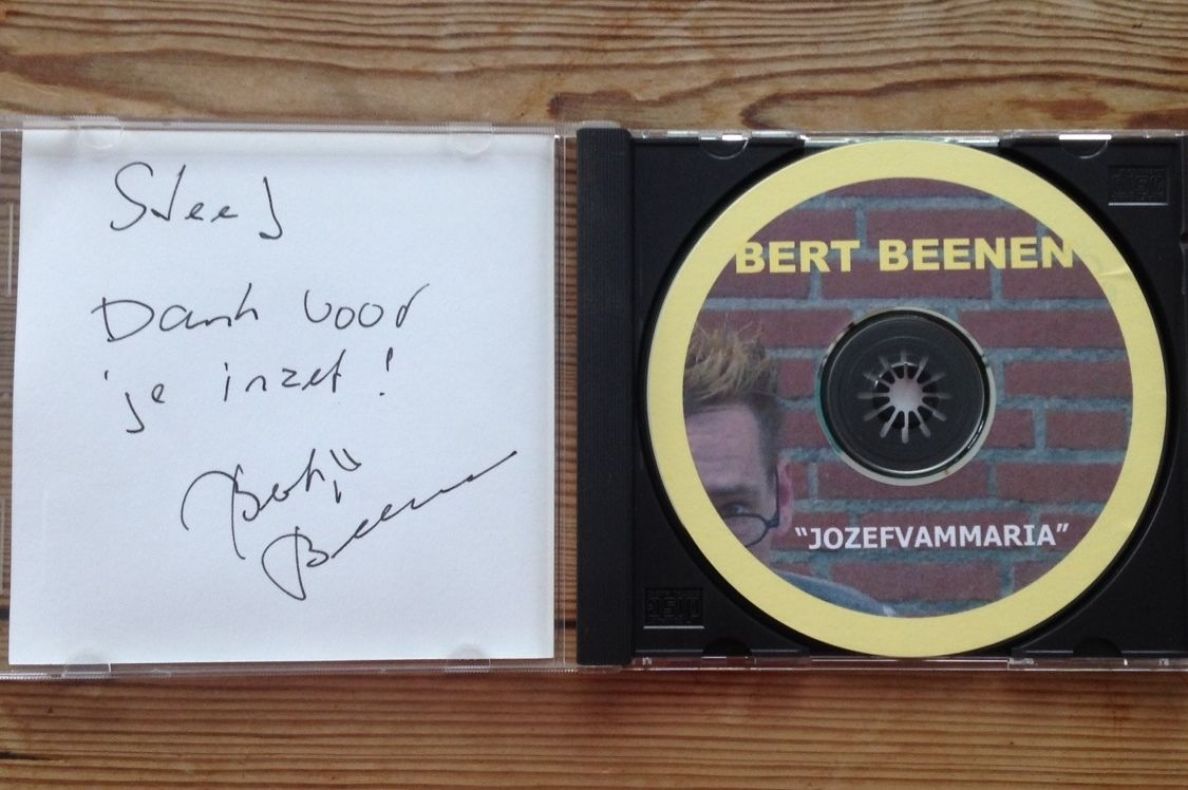 Dank voor
je inzet!
Beenen
BERT BEENEN
"JOZEFVAMMARIA"